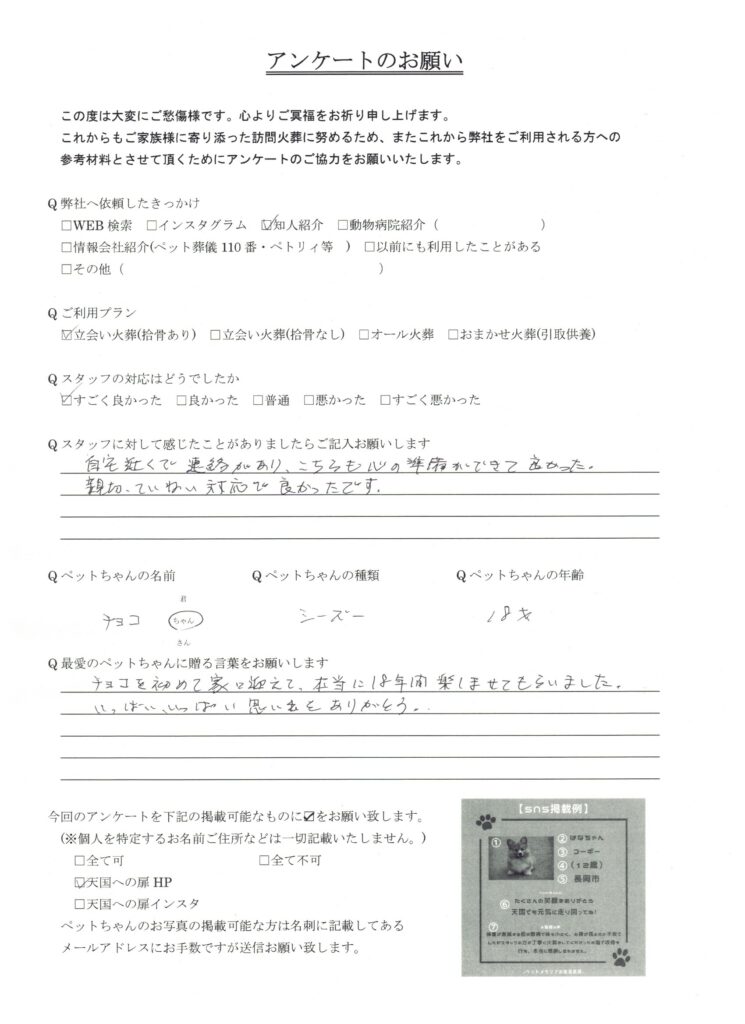 アンケートのお願い
この度は大変にご愁傷様です。心よりご冥福をお祈り申し上げます。
これからもご家族様に寄り添った訪問火葬に努めるため、またこれから弊社をご利用される方への
参考材料とさせて頂くためにアンケートのご協力をお願いいたします。
Q 弊社へ依頼したきっかけ
□WEB 検索 □インスタグラム ☑知人紹介 □動物病院紹介（ ）
□情報会社紹介(ペット葬儀 110 番・ペトリィ等 ) □以前にも利用したことがある
□その他（ ）
Q ご利用プラン
☑立会い火葬(拾骨あり) □立会い火葬(拾骨なし) □オール火葬 □おまかせ火葬(引取供養)
Q スタッフの対応はどうでしたか
☑すごく良かった □良かった □普通 □悪かった □すごく悪かった
Q スタッフに対して感じたことがありましたらご記入お願いします
自宅近くで連絡があり、こちらも心の準備ができて良かった。
親切、ていねい対応で良かったです。
Q ペットちゃんの名前 Q ペットちゃんの種類 Q ペットちゃんの年齢
君
チョコ ちゃん シーズー 18才
さん
Q 最愛のペットちゃんに贈る言葉をお願いします
チョコを初めて家に迎えて、本当に18年間楽しませてもらいました。
いっぱい、いっぱい思い出をありがとう。
今回のアンケートを下記の掲載可能なものに☑をお願い致します。
(※個人を特定するお名前ご住所などは一切記載いたしません。)
□全て可 □全て不可
☑天国への扉 HP
□天国への扉インスタ
ペットちゃんのお写真の掲載可能な方は名刺に記載してある
メールアドレスにお手数ですが送信お願い致します。
【sns掲載例】
① ② はなちゃん
③ コーギー
④ (12歳)
⑤ 長岡市
⑥ たくさんの笑顔をありがとう
天国でも元気に走り回ってね!
⑦